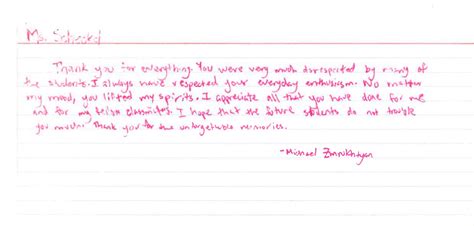 Ms.
Thank you for everything. You were very much disrespected by many of
the students. I always have respected your everyday enthusiasm. No matter
my mood, you lifted my spirits. I appreciate all that you have done for me
and for my fellow classmates. I hope that the future students do not trouble
you much. Thank you for the unforgettable memories.
-Michael